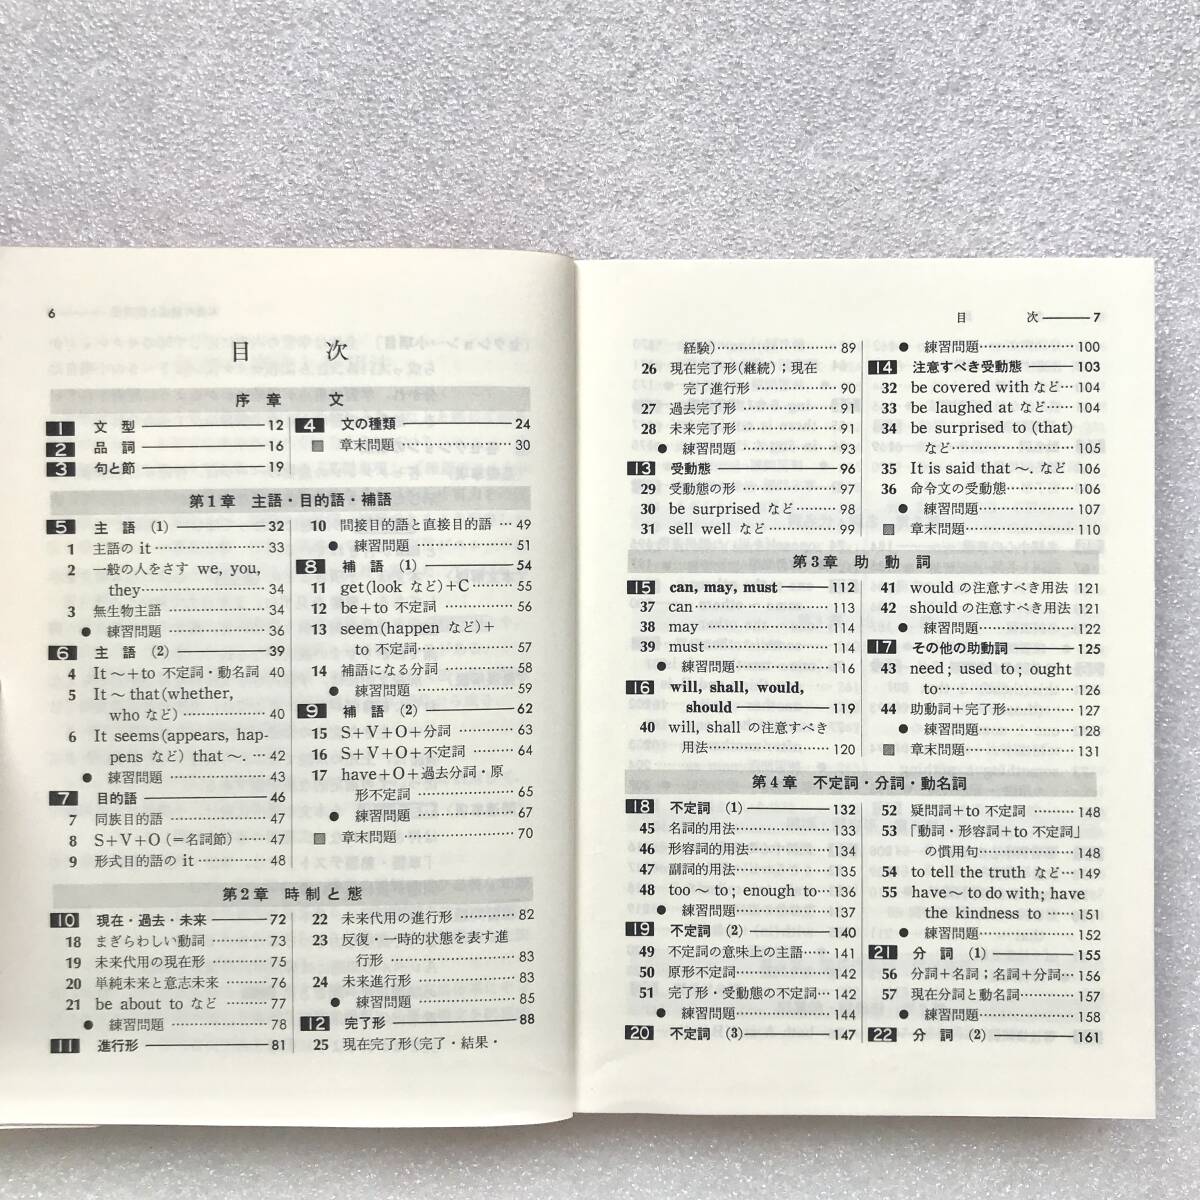 6
目 次
序章 文
1 文型 12
2 品詞 16
3 句と節 19
4 文の種類 24
章末問題 30
第1章 主語・目的語・補語
5 主語 (1) 32
1 主語の it 33
2 一般の人をさす we, you,
they 34
3 無生物主語 34
● 練習問題 36
6 主語 (2) 39
4 It ～+to 不定詞・動名詞 40
5 It ～ that (whether,
who など) 40
6 It seems (appears, hap-
pens など) that ～. 42
● 練習問題 43
7 目的語 46
7 同族目的語 47
8 S+V+O (=名詞節) 47
9 形式目的語の it 48
10 間接目的語と直接目的語 49
● 練習問題 51
8 補語 (1) 54
11 get (look など)+C 55
12 be+to 不定詞 56
13 seem (happen など)+
to 不定詞 57
14 補語になる分詞 58
● 練習問題 59
9 補語 (2) 62
15 S+V+O+分詞 63
16 S+V+O+不定詞 64
17 have+O+過去分詞・原
形不定詞 65
● 練習問題 67
章末問題 70
第2章 時制と態
10 現在・過去・未来 72
18 まぎらわしい動詞 73
19 未来代用の現在形 75
20 単純未来と意志未来 76
21 be about to など 77
● 練習問題 78
11 進行形 81
22 未来代用の進行形 82
23 反復・一時的状態を表す進
行形 83
24 未来進行形 83
● 練習問題 85
12 完了形 88
25 現在完了形(完了・結果・
目 次 7
経験) 89
26 現在完了形(継続)；現在
完了進行形 90
27 過去完了形 91
28 未来完了形 91
● 練習問題 93
13 受動態 96
29 受動態の形 97
30 be surprised など 98
31 sell well など 99
● 練習問題 100
14 注意すべき受動態 103
32 be covered with など 104
33 be laughed at など 104
34 be surprised to (that)
など 105
35 It is said that ～. など 106
36 命令文の受動態 106
● 練習問題 107
章末問題 110
第3章 助動詞
15 can, may, must 112
37 can 113
38 may 114
39 must 114
● 練習問題 116
16 will, shall, would,
should 119
40 will, shall の注意すべき
用法 120
41 would の注意すべき用法 121
42 should の注意すべき用法 121
● 練習問題 122
17 その他の助動詞 125
43 need; used to; ought
to 126
44 助動詞+完了形 127
● 練習問題 128
章末問題 131
第4章 不定詞・分詞・動名詞
18 不定詞 (1) 132
45 名詞的用法 133
46 形容詞的用法 134
47 副詞的用法 135
48 too ～ to; enough to 136
● 練習問題 137
19 不定詞 (2) 140
49 不定詞の意味上の主語 141
50 原形不定詞 142
51 完了形・受動態の不定詞 142
● 練習問題 144
20 不定詞 (3) 147
52 疑問詞+to 不定詞 148
53 「動詞・形容詞+to 不定詞」
の慣用句 148
54 to tell the truth など 149
55 have ～ to do with; have
the kindness to 151
● 練習問題 152
21 分詞 (1) 155
56 分詞+名詞；名詞+分詞 156
57 現在分詞と動名詞 157
● 練習問題 158
22 分詞 (2) 161